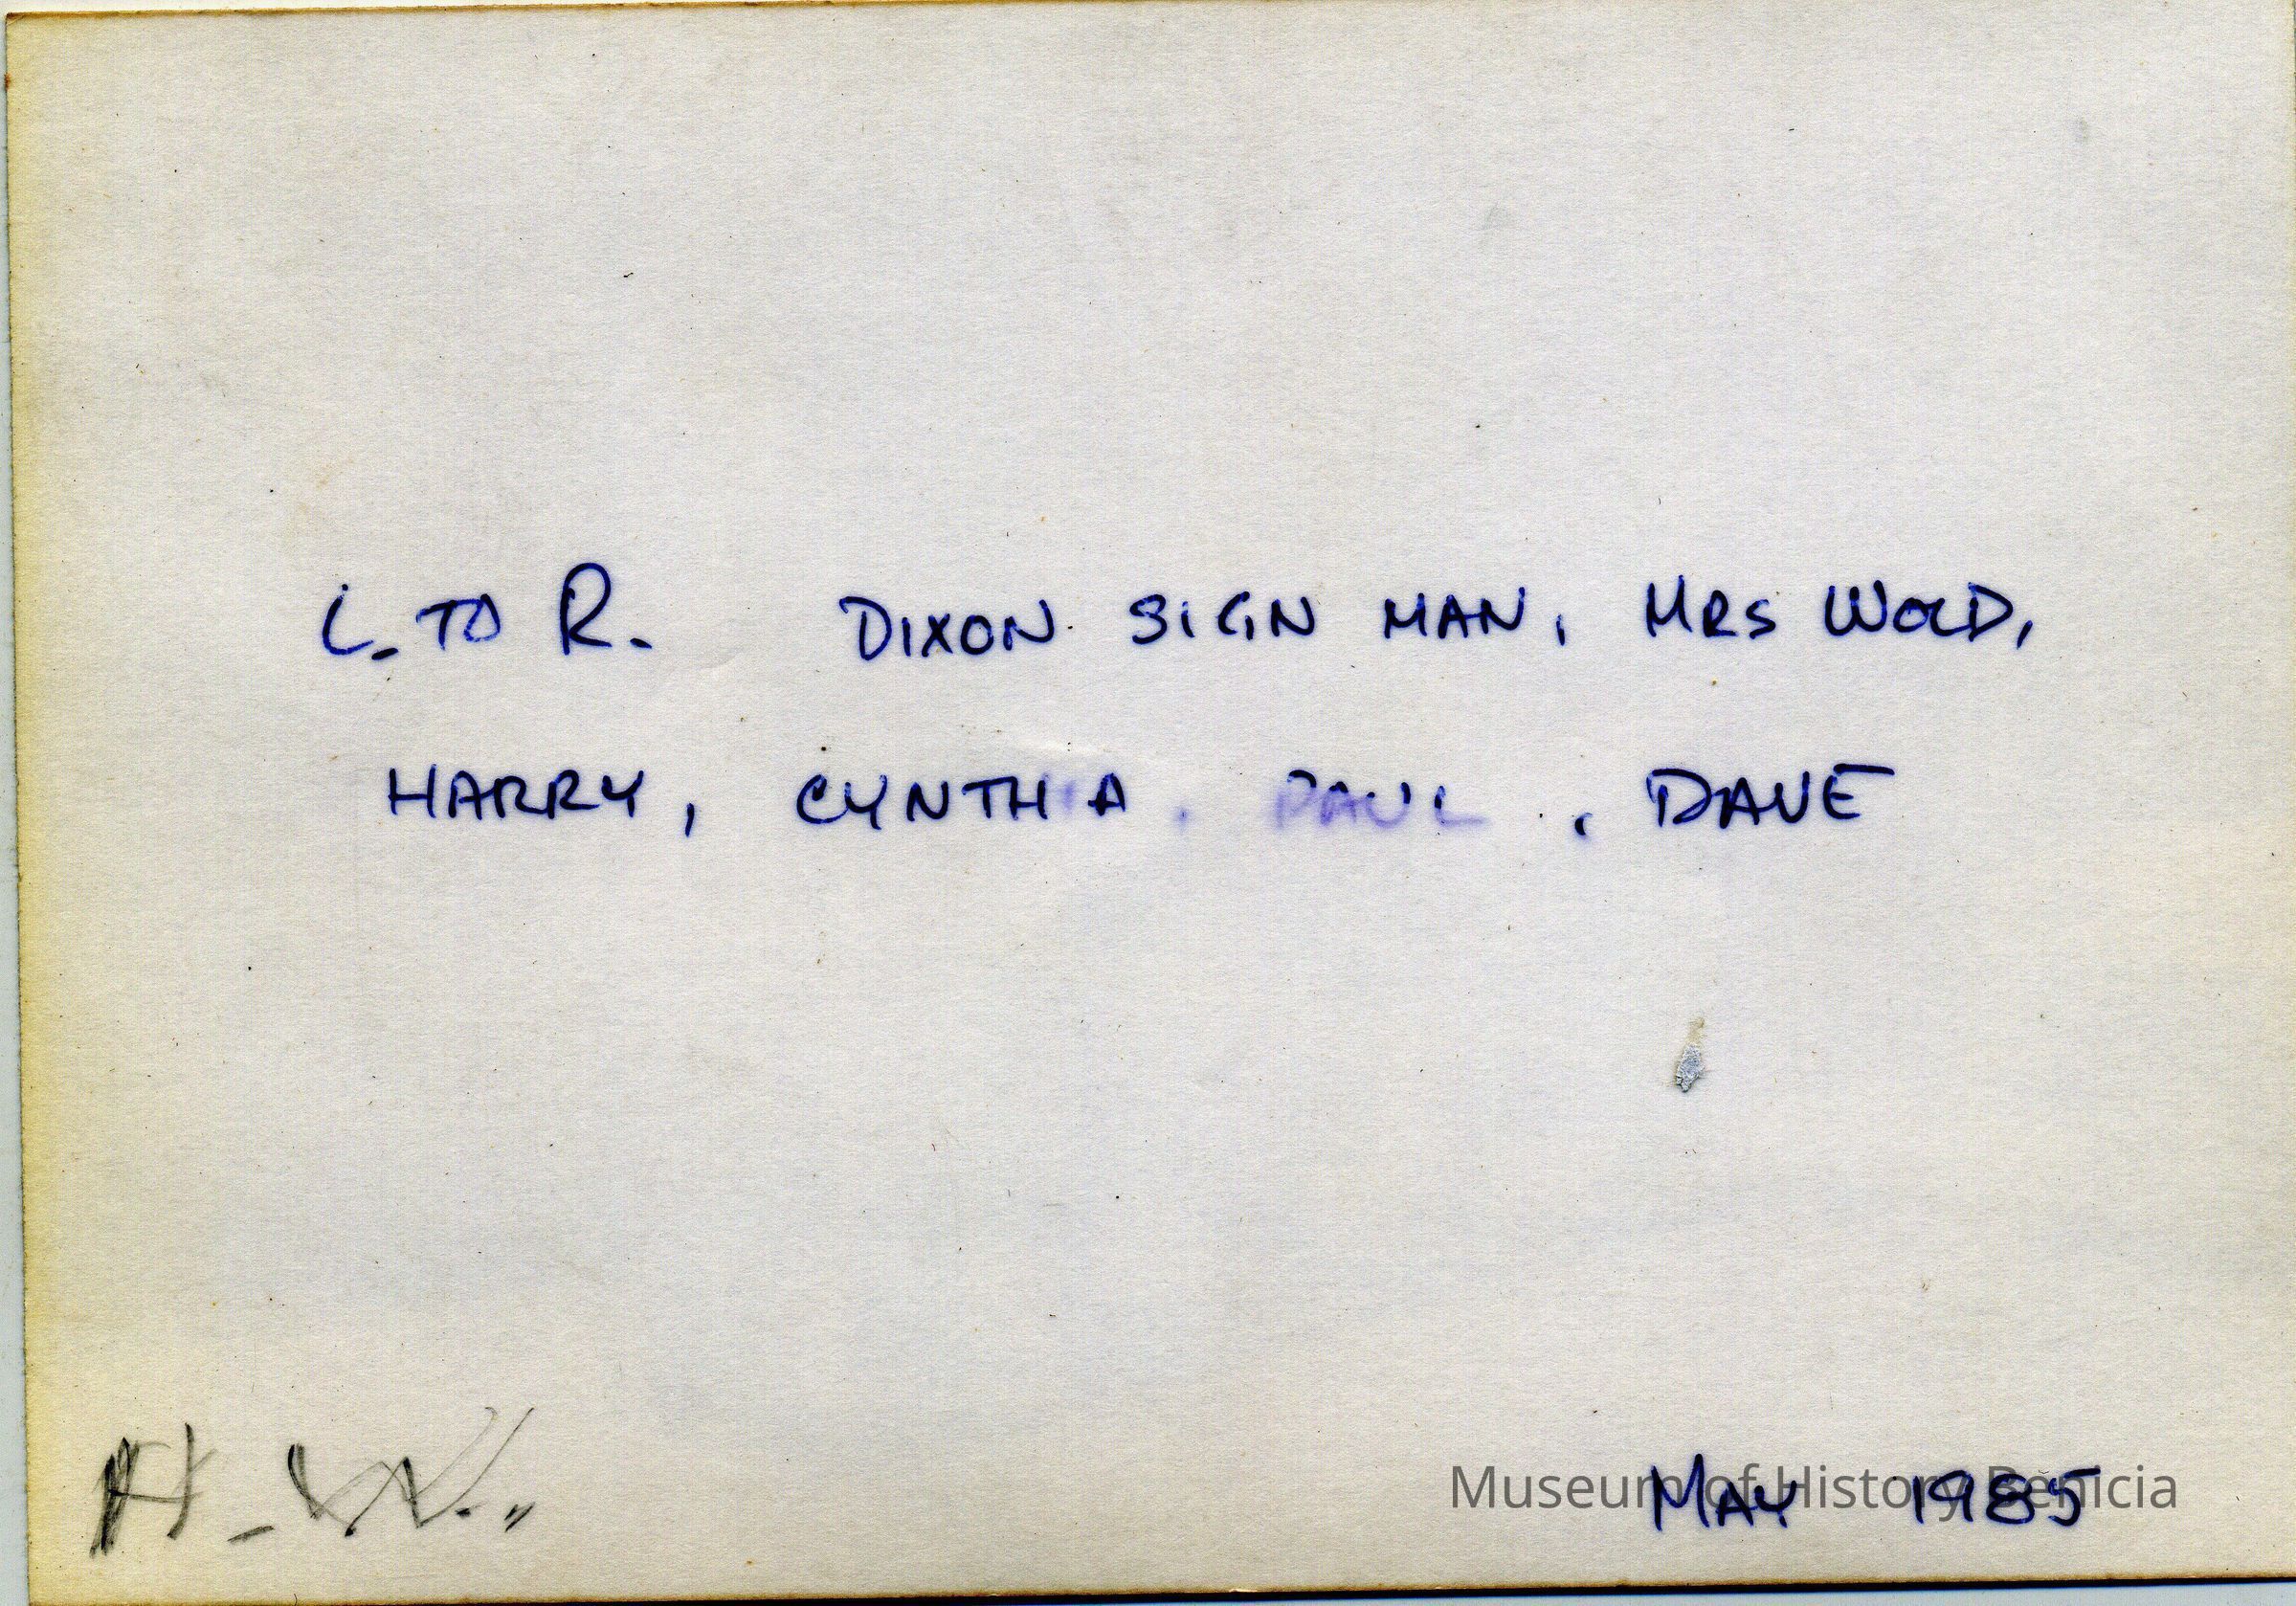 L. TO R. DIXON SIGN MAN, MRS WOLD,
HARRY, CYNTHIA, PAUL, DAVE
H-W.,,
MAY 1985
Museum of History Benicia